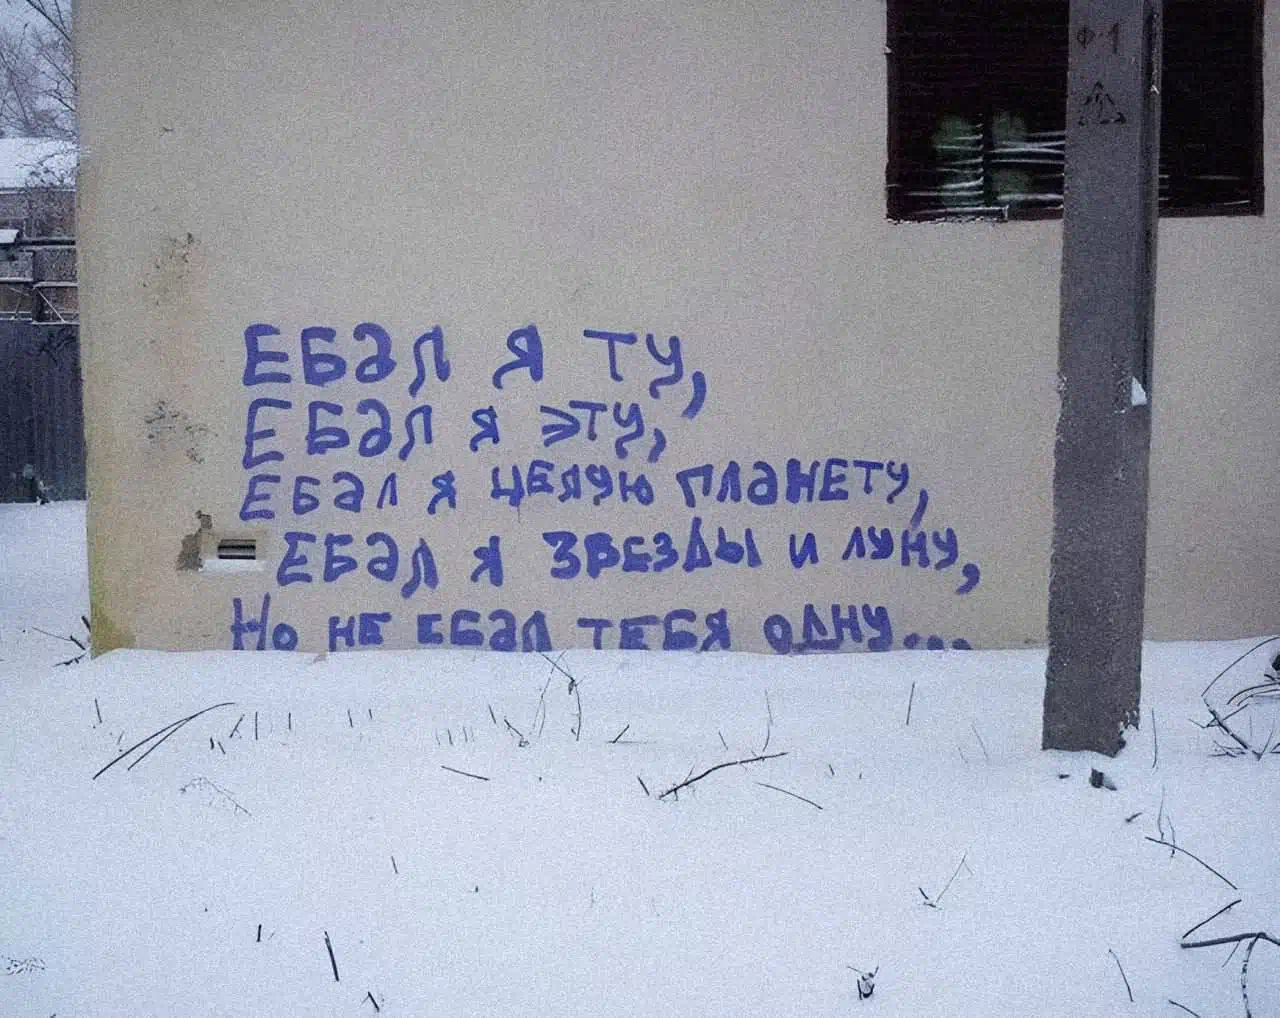 Ф-1
ЕБАЛ Я ТУ,
ЕБАЛ Я ЭТУ,
ЕБАЛ Я ЦЕЛУЮ ПЛАНЕТУ,
ЕБАЛ Я ЗВЕЗДЫ И ЛУНУ,
НО НЕ ЕБАЛ ТЕБЯ ОДНУ...